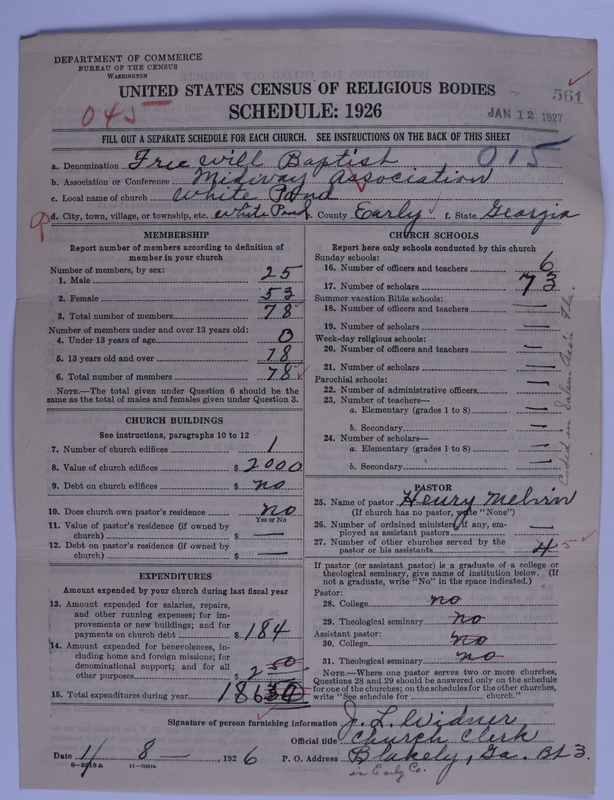 DEPARTMENT OF COMMERCE
BUREAU OF THE CENSUS
WASHINGTON
UNITED STATES CENSUS OF RELIGIOUS BODIES
SCHEDULE: 1926
045
561
JAN 12 1927
FILL OUT A SEPARATE SCHEDULE FOR EACH CHURCH. SEE INSTRUCTIONS ON THE BACK OF THIS SHEET
a. Denomination Free Will Baptist 015
b. Association or Conference Midway Association
c. Local name of church White Pond
d. City, town, village, or township, etc. White Pond e. County Early f. State Georgia
MEMBERSHIP
Report number of members according to definition of
member in your church
Number of members, by sex:
1. Male 25
2. Female 53
3. Total number of members 78
Number of members under and over 13 years old:
4. Under 13 years of age 0
5. 13 years old and over 78
6. Total number of members 78
NOTE.—The total given under Question 6 should be
same as the total of males and females given under Question 3.
CHURCH BUILDINGS
See instructions, paragraphs 10 to 12
7. Number of church edifices 1
8. Value of church edifices $ 2000
9. Debt on church edifices $ no
10. Does church own pastor's residence no
Yes or No
11. Value of pastor's residence (if owned by
church) $ —
12. Debt on pastor's residence (if owned by
church) $ —
EXPENDITURES
Amount expended by your church during last fiscal year
13. Amount expended for salaries, repairs,
and other running expenses; for im-
provements or new buildings; and for
payments on church debt $ 184
14. Amount expended for benevolences, in-
cluding home and foreign missions; for
denominational support; and for all
other purposes $ 2 50
15. Total expenditures during year 186
CHURCH SCHOOLS
Report here only schools conducted by this church
Sunday schools:
16. Number of officers and teachers 6
17. Number of scholars 73
Summer vacation Bible schools:
18. Number of officers and teachers —
19. Number of scholars —
Week-day religious schools:
20. Number of officers and teachers —
21. Number of scholars —
Parochial schools:
22. Number of administrative officers —
23. Number of teachers—
a. Elementary (grades 1 to 8) —
b. Secondary —
24. Number of scholars—
a. Elementary (grades 1 to 8) —
b. Secondary —
PASTOR
25. Name of pastor Henry Melvin
(If church has no pastor, write "None")
26. Number of ordained ministers, if any, em-
ployed as assistant pastors —
27. Number of other churches served by the
pastor or his assistants 4 5
If pastor (or assistant pastor) is a graduate of a college or
theological seminary, give name of institution below. (If
not a graduate, write "No" in the space indicated.)
Pastor:
28. College no
29. Theological seminary no
Assistant pastor:
30. College no
31. Theological seminary no
NOTE.—Where one pastor serves two or more churches,
Questions 28 and 29 should be answered only on the schedule
for one of the churches; on the schedules for the other churches,
write "See schedule for church."
Signature of person furnishing information J. L. Widner
Official title Church Clerk
Date 1/8— , 1926 P. O. Address Blakely, Ga. Rt 3.
in Early Co.
8—5518a 11—9054a